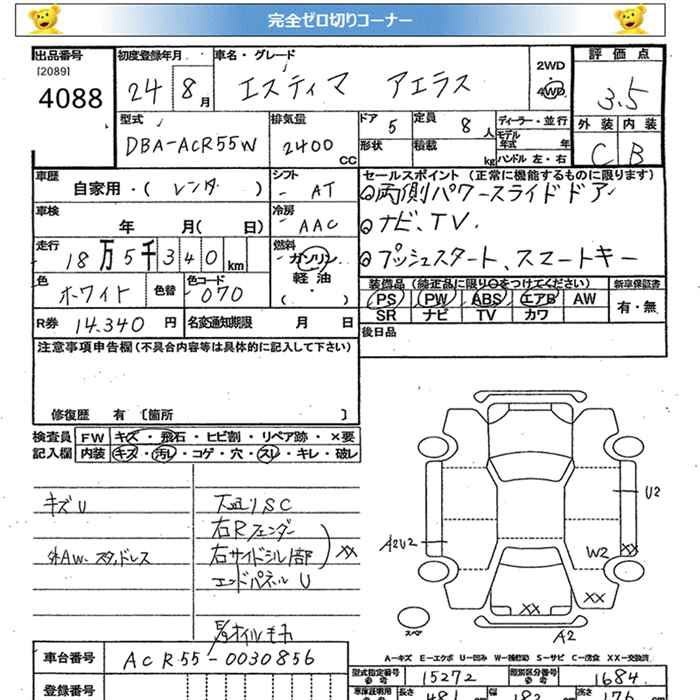 完全ゼロ切りコーナー
出品番号
[2089]
4088
初度登録年月
24 8月
車名・グレード
エスティマ アエラス
2WD
4WD
評価点
3.5
外装 内装
C B
型式
DBA-ACR55W
排気量
2400 CC
ドア 5
定員 8人
形状
積載 kg
ディーラー・並行
モデル年式 年
ハンドル 左・右
車歴
自家用・( レンタ )
シフト
AT
車検
年 月( 日)
冷房
AAC
走行
18万5千340km
燃料
ガソリン
軽油
( ・ )
セールスポイント (正常に機能するものに限ります)
両側パワースライドドア
ナビ、TV.
プッシュスタート、スマートキー
色
ホワイト
色替
色コード
070
装備品 (純正品に限り○をつけてください)
PS PW ABS エアB AW
SR ナビ TV カワ
新車保証書
有・無
R券 14.340 円
名変通知期限 月 日
後日品
注意事項申告欄(不具合内容等は具体的に記入して下さい)
修復歴 有 〔箇所 〕
検査員記入欄
FW キズ・飛石・ヒビ割・リペア跡・×要
内装 キズ・汚レ・コゲ・穴・スレ・キレ・破レ
キズU
外AW、スタッドレス
下廻りSC
右Rフェンダー
右サイドシル1部
エンドパネルU
XX
U2
A2U2
W2
XX
XX
XX
A2
スペア
A-キズ E-エクボ U-凹み W-補修跡 S-サビ C-腐食 XX-交換済
車台番号
ACR55-0030856
登録番号
型式指定番号
参考
15272
類別区分番号
参考
1684
車庫証明用
参考
長さ 481 cm
幅 182 cm
高さ 176 cm